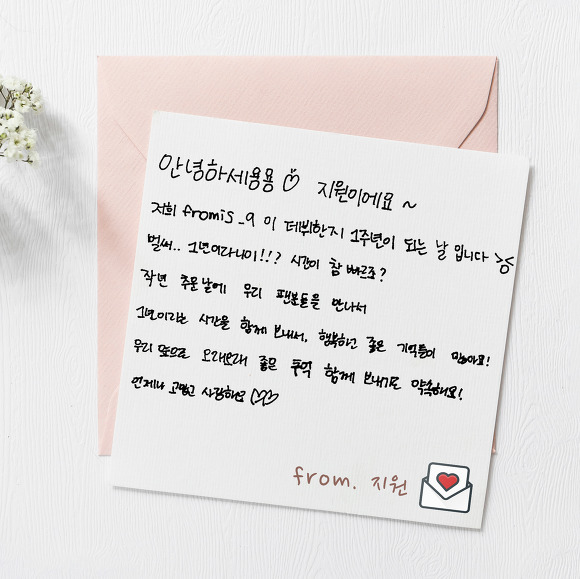 안녕하세용용 ♡ 지원이에요 ~
저희 fromis_9 이 데뷔한지 1주년이 되는 날 입니다 ><
벌써.. 1년이라니이!!? 시간이 참 빠르죠?
작년 추운날에 우리 팬분들을 만나서
1년이라는 시간을 함께 보내서, 행복하고 좋은 기억들이 많아요!
우리 앞으로 오래오래 좋은 추억 함께 보내기로 약속해요!
언제나 고맙고 사랑해요 ♡♡
from. 지원